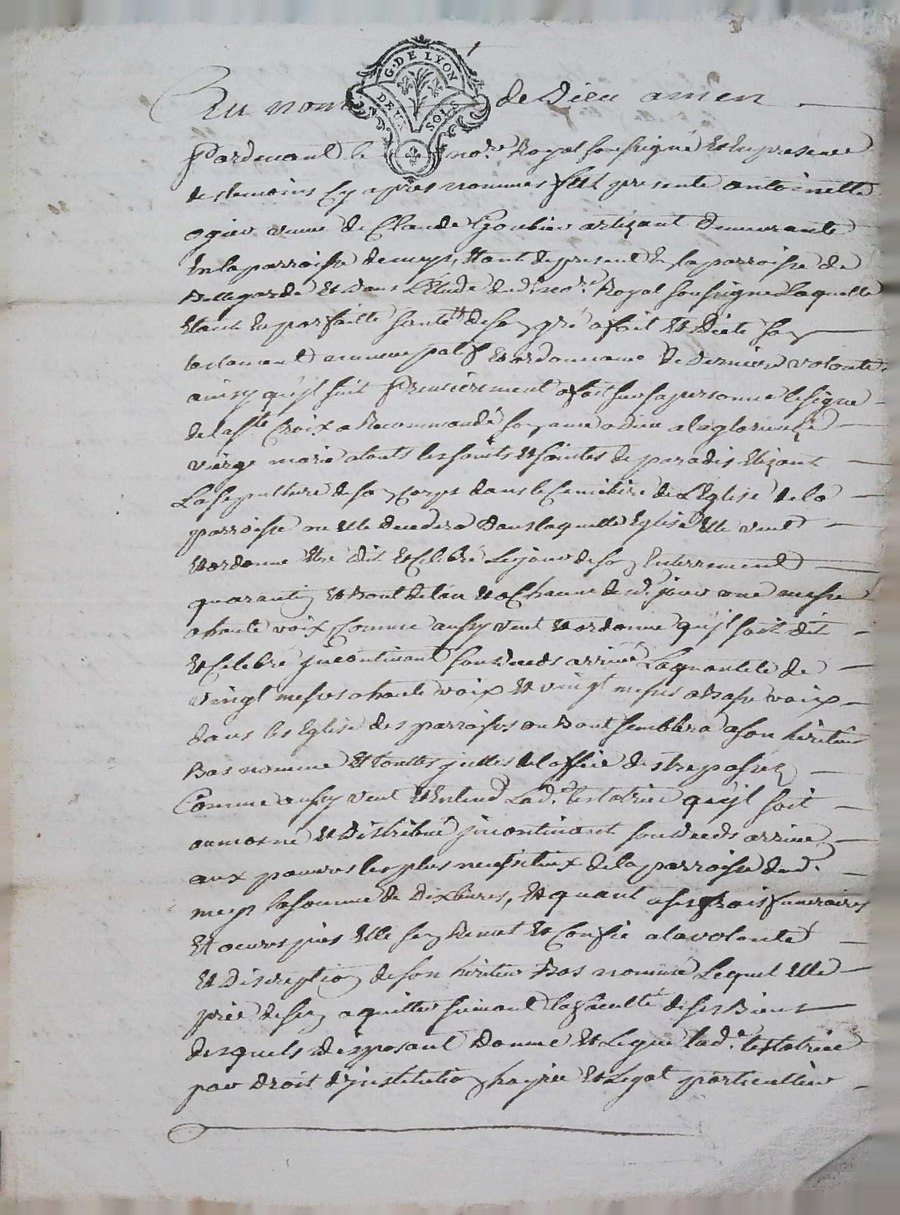 Au nom de Dieu amen
G. DE LYON
DEUX SOLS
Pardevant le no.re Royal soussigné et en presence
des temoins cy apres nommes fut presente antoinette
ogier veuve de Claude Goubier artizant demeurante
en la parroisse de meys, etant de present en la parroisse de
Bellegarde et dans l'Etude dudit no.re Royal soussigné Laquelle
Etant en parfaitte santé de son gré a fait et dicté son
testament et ordonnance de derniere volonté
ainsy qu'jl suit Premierement a fait sur sa personne le signe
de la s.te Croix a Recommandé son ame a Dieu a la glorieuse
vierge marie a touts les saints et saintes de paradis Elizant
La sepulture de son corps dans le Cemitiere de L'Eglise de la
parroisse ou elle decedera dans laquelle Eglise elle veut
et ordonne etre dit et Celebré Le jour de son Enterrement
quarantin et Bout de l'an et a Chacun desd. jours une messe
a haute voix, Comme aussy veut et ordonne qu'jl soit dit
et Celebré jncontinant son deceds arrivé La quantité de
vingt messes a haute voix et vingt messes a Basse voix
dans les Eglise des parroisses ou Bon semblera a son heritier
Bas nommé et touttes jcelles de l'office des trepassés
Comme aussy veut et Entend Lad.e testatrice qu'jl soit
aumosné et Distribué jncontinant son deceds arrivé
aux pauvres les plus necessiteux de la parroisse dud.
meys la somme de Dix livres, et quant a ses frais funeraires
et oeuvres pies elle s'en Remet et Confie a la volonté
et Discreption de son heritier Bas nommé Lequel elle
prie de s'en aquitter suivant la faculté de ses Biens
desquels disposant Donne et Legue lad.e testatrice
par droit d'jnstitution hayrie et Legat particullier